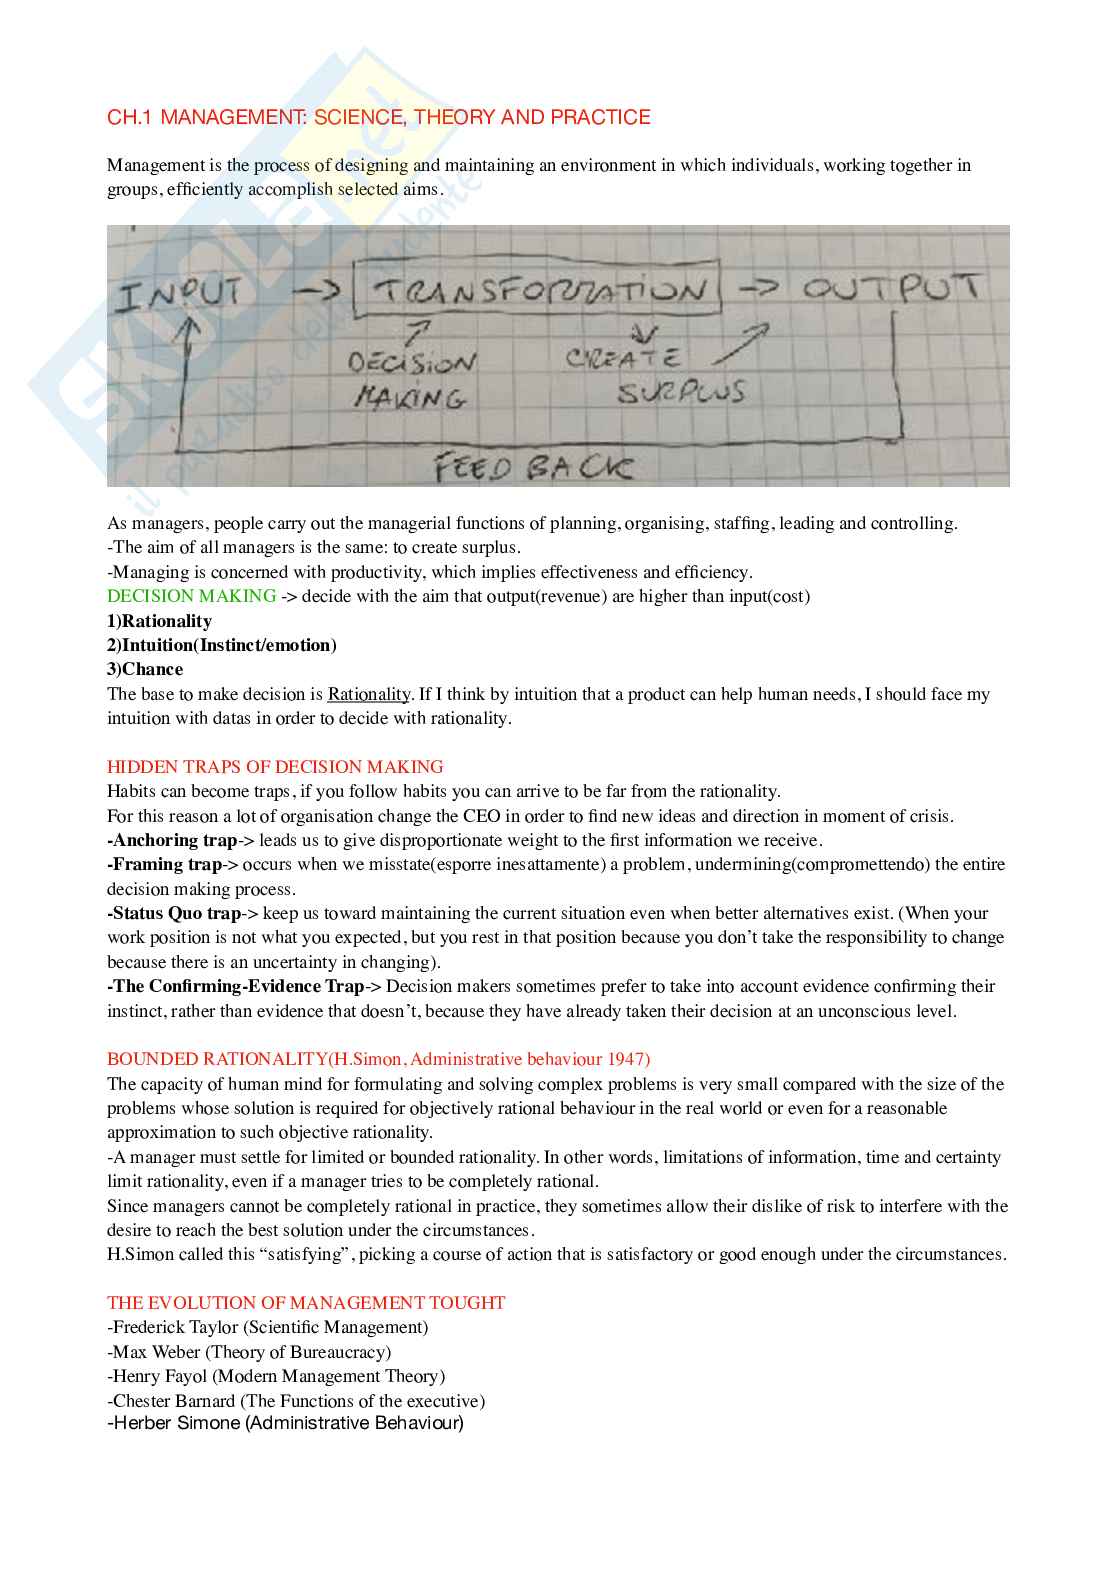 CH.1 MANAGEMENT: SCIENCE, THEORY AND PRACTICE
Management is the process of designing and maintaining an environment in which individuals, working together in
groups, efficiently accomplish selected aims.
INPUT -> TRANSFORMATION -> OUTPUT
DECISION CREATE
MAKING SURPLUS
FEEDBACK
SKUOLA.net
il paradiso dello studente
As managers, people carry out the managerial functions of planning, organising, staffing, leading and controlling.
-The aim of all managers is the same: to create surplus.
-Managing is concerned with productivity, which implies effectiveness and efficiency.
DECISION MAKING -> decide with the aim that output(revenue) are higher than input(cost)
1)Rationality
2)Intuition(Instinct/emotion)
3)Chance
The base to make decision is Rationality. If I think by intuition that a product can help human needs, I should face my
intuition with datas in order to decide with rationality.
HIDDEN TRAPS OF DECISION MAKING
Habits can become traps, if you follow habits you can arrive to be far from the rationality.
For this reason a lot of organisation change the CEO in order to find new ideas and direction in moment of crisis.
-Anchoring trap-> leads us to give disproportionate weight to the first information we receive.
-Framing trap-> occurs when we misstate(esporre inesattamente) a problem, undermining(compromettendo) the entire
decision making process.
-Status Quo trap-> keep us toward maintaining the current situation even when better alternatives exist. (When your
work position is not what you expected, but you rest in that position because you don’t take the responsibility to change
because there is an uncertainty in changing).
-The Confirming-Evidence Trap-> Decision makers sometimes prefer to take into account evidence confirming their
instinct, rather than evidence that doesn’t, because they have already taken their decision at an unconscious level.
BOUNDED RATIONALITY(H.Simon, Administrative behaviour 1947)
The capacity of human mind for formulating and solving complex problems is very small compared with the size of the
problems whose solution is required for objectively rational behaviour in the real world or even for a reasonable
approximation to such objective rationality.
-A manager must settle for limited or bounded rationality. In other words, limitations of information, time and certainty
limit rationality, even if a manager tries to be completely rational.
Since managers cannot be completely rational in practice, they sometimes allow their dislike of risk to interfere with the
desire to reach the best solution under the circumstances.
H.Simon called this “satisfying”, picking a course of action that is satisfactory or good enough under the circumstances.
THE EVOLUTION OF MANAGEMENT TOUGHT
-Frederick Taylor (Scientific Management)
-Max Weber (Theory of Bureaucracy)
-Henry Fayol (Modern Management Theory)
-Chester Barnard (The Functions of the executive)
-Herber Simone (Administrative Behaviour)